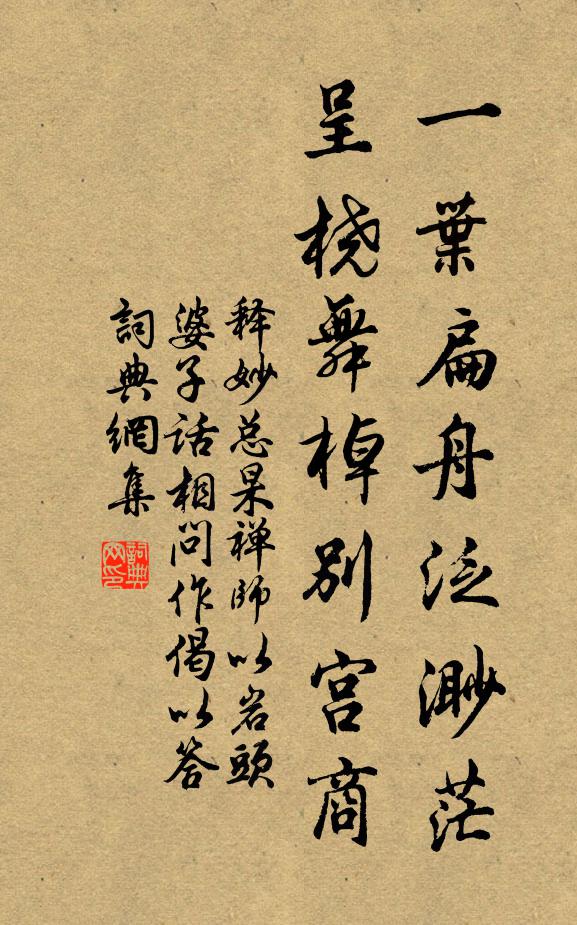 一葉扁舟泛渺茫
呈桡舞棹別宫商
释妙总杲禅師以岩頭
婆子话相问作偈以答
詞典網集
詞典网印